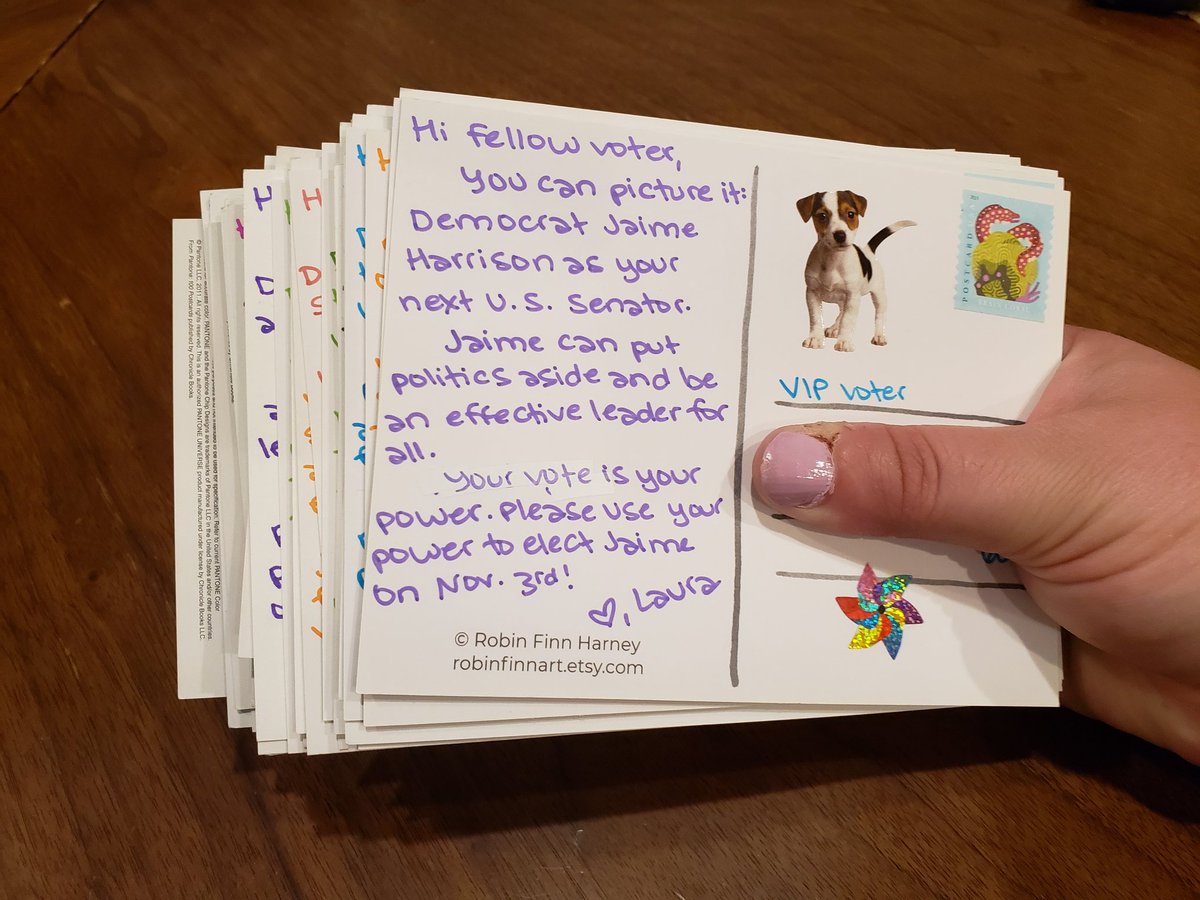 Hi fellow voter,
You can picture it:
Democrat Jaime
Harrison as your
next U.S. Senator.
Jaime can put
politics aside and be
an effective leader for
all.
Your vote is your
power. Please use your
power to elect Jaime
on Nov. 3rd!
♡, Laura
© Robin Finn Harney
robinfinnart.etsy.com
VIP voter
POSTCARD
© Pantone LLC, 2011. All rights reserved. This is an authorized PANTONE UNIVERSE product manufactured under license by Chronicle Books LLC.
From Pantone: 100 Postcards published by Chronicle Books.